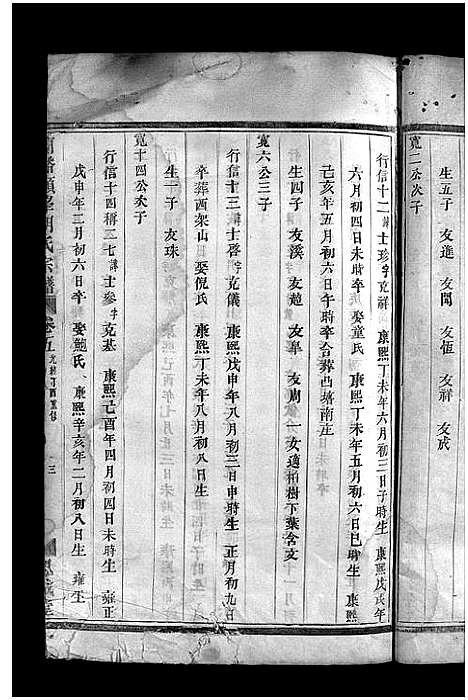 生五子 友進 友聞 友恆 友祥 友成
寬二公次子
行信十二諱士珍字克祥 康熙丁未年六月初三日子時生 康熙戊戌年
六月初四日未時卒 娶童氏 康熙丁未年五月初六日巳時生 康熙
己亥年五月初六日午時卒合葬凹塘南庄
生四子 友溪 友趙 友阜 友周 一女適柏樹下葉含文
寬六公三子
行信十三諱士啓字克儀 康熙戊申年八月初三日申時生 正月初九日
卒葬西架山 娶倪氏 康熙丁未年八月初八日生
生一子 友珠
寬十四公次子
行信十四稱二七諱士參字克基 康熙己酉年四月初四日未時生 雍正
戊申年二月初六日卒 娶鮑氏 康熙辛亥年二月初八日生 雍正
胡氏宗譜 卷五 光緒丁酉重修 三